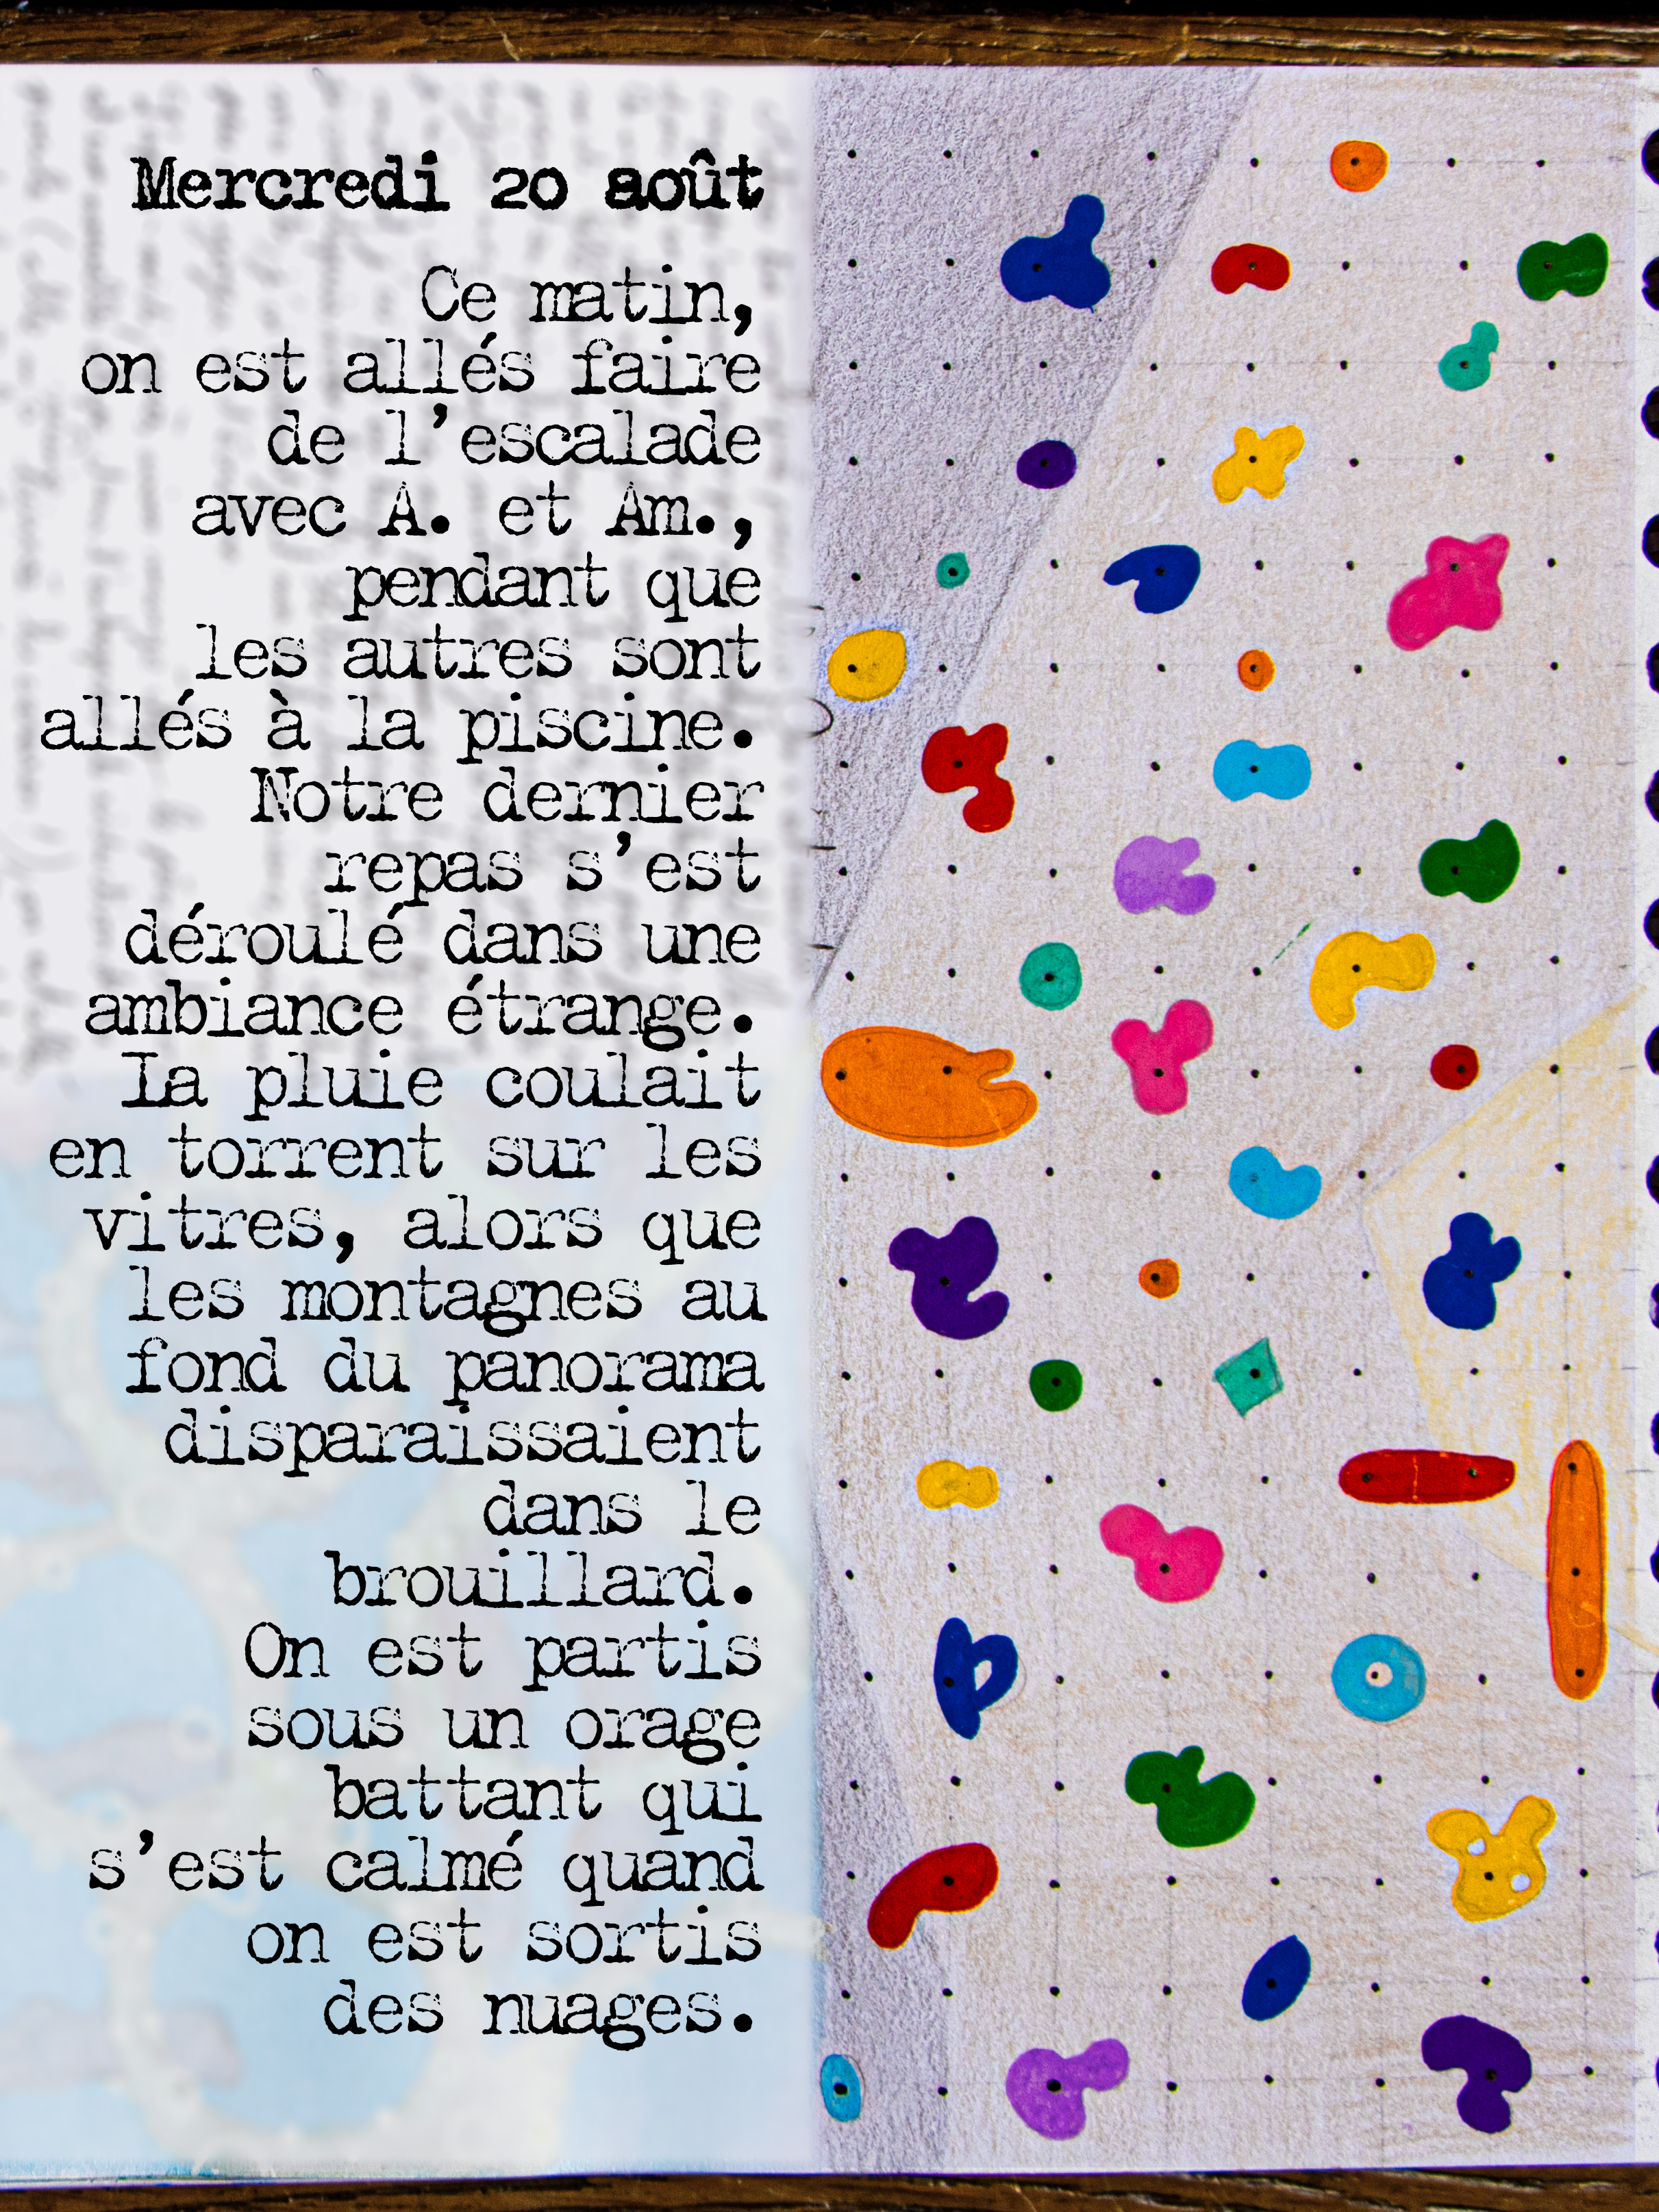 Mercredi 20 août
Ce matin,
on est allés faire
de l'escalade
avec A. et Am.,
pendant que
les autres sont
allés à la piscine.
Notre dernier
repas s'est
déroulé dans une
ambiance étrange.
La pluie coulait
en torrent sur les
vitres, alors que
les montagnes au
fond du panorama
disparaissaient
dans le
brouillard.
On est partis
sous un orage
battant qui
s'est calmé quand
on est sortis
des nuages.